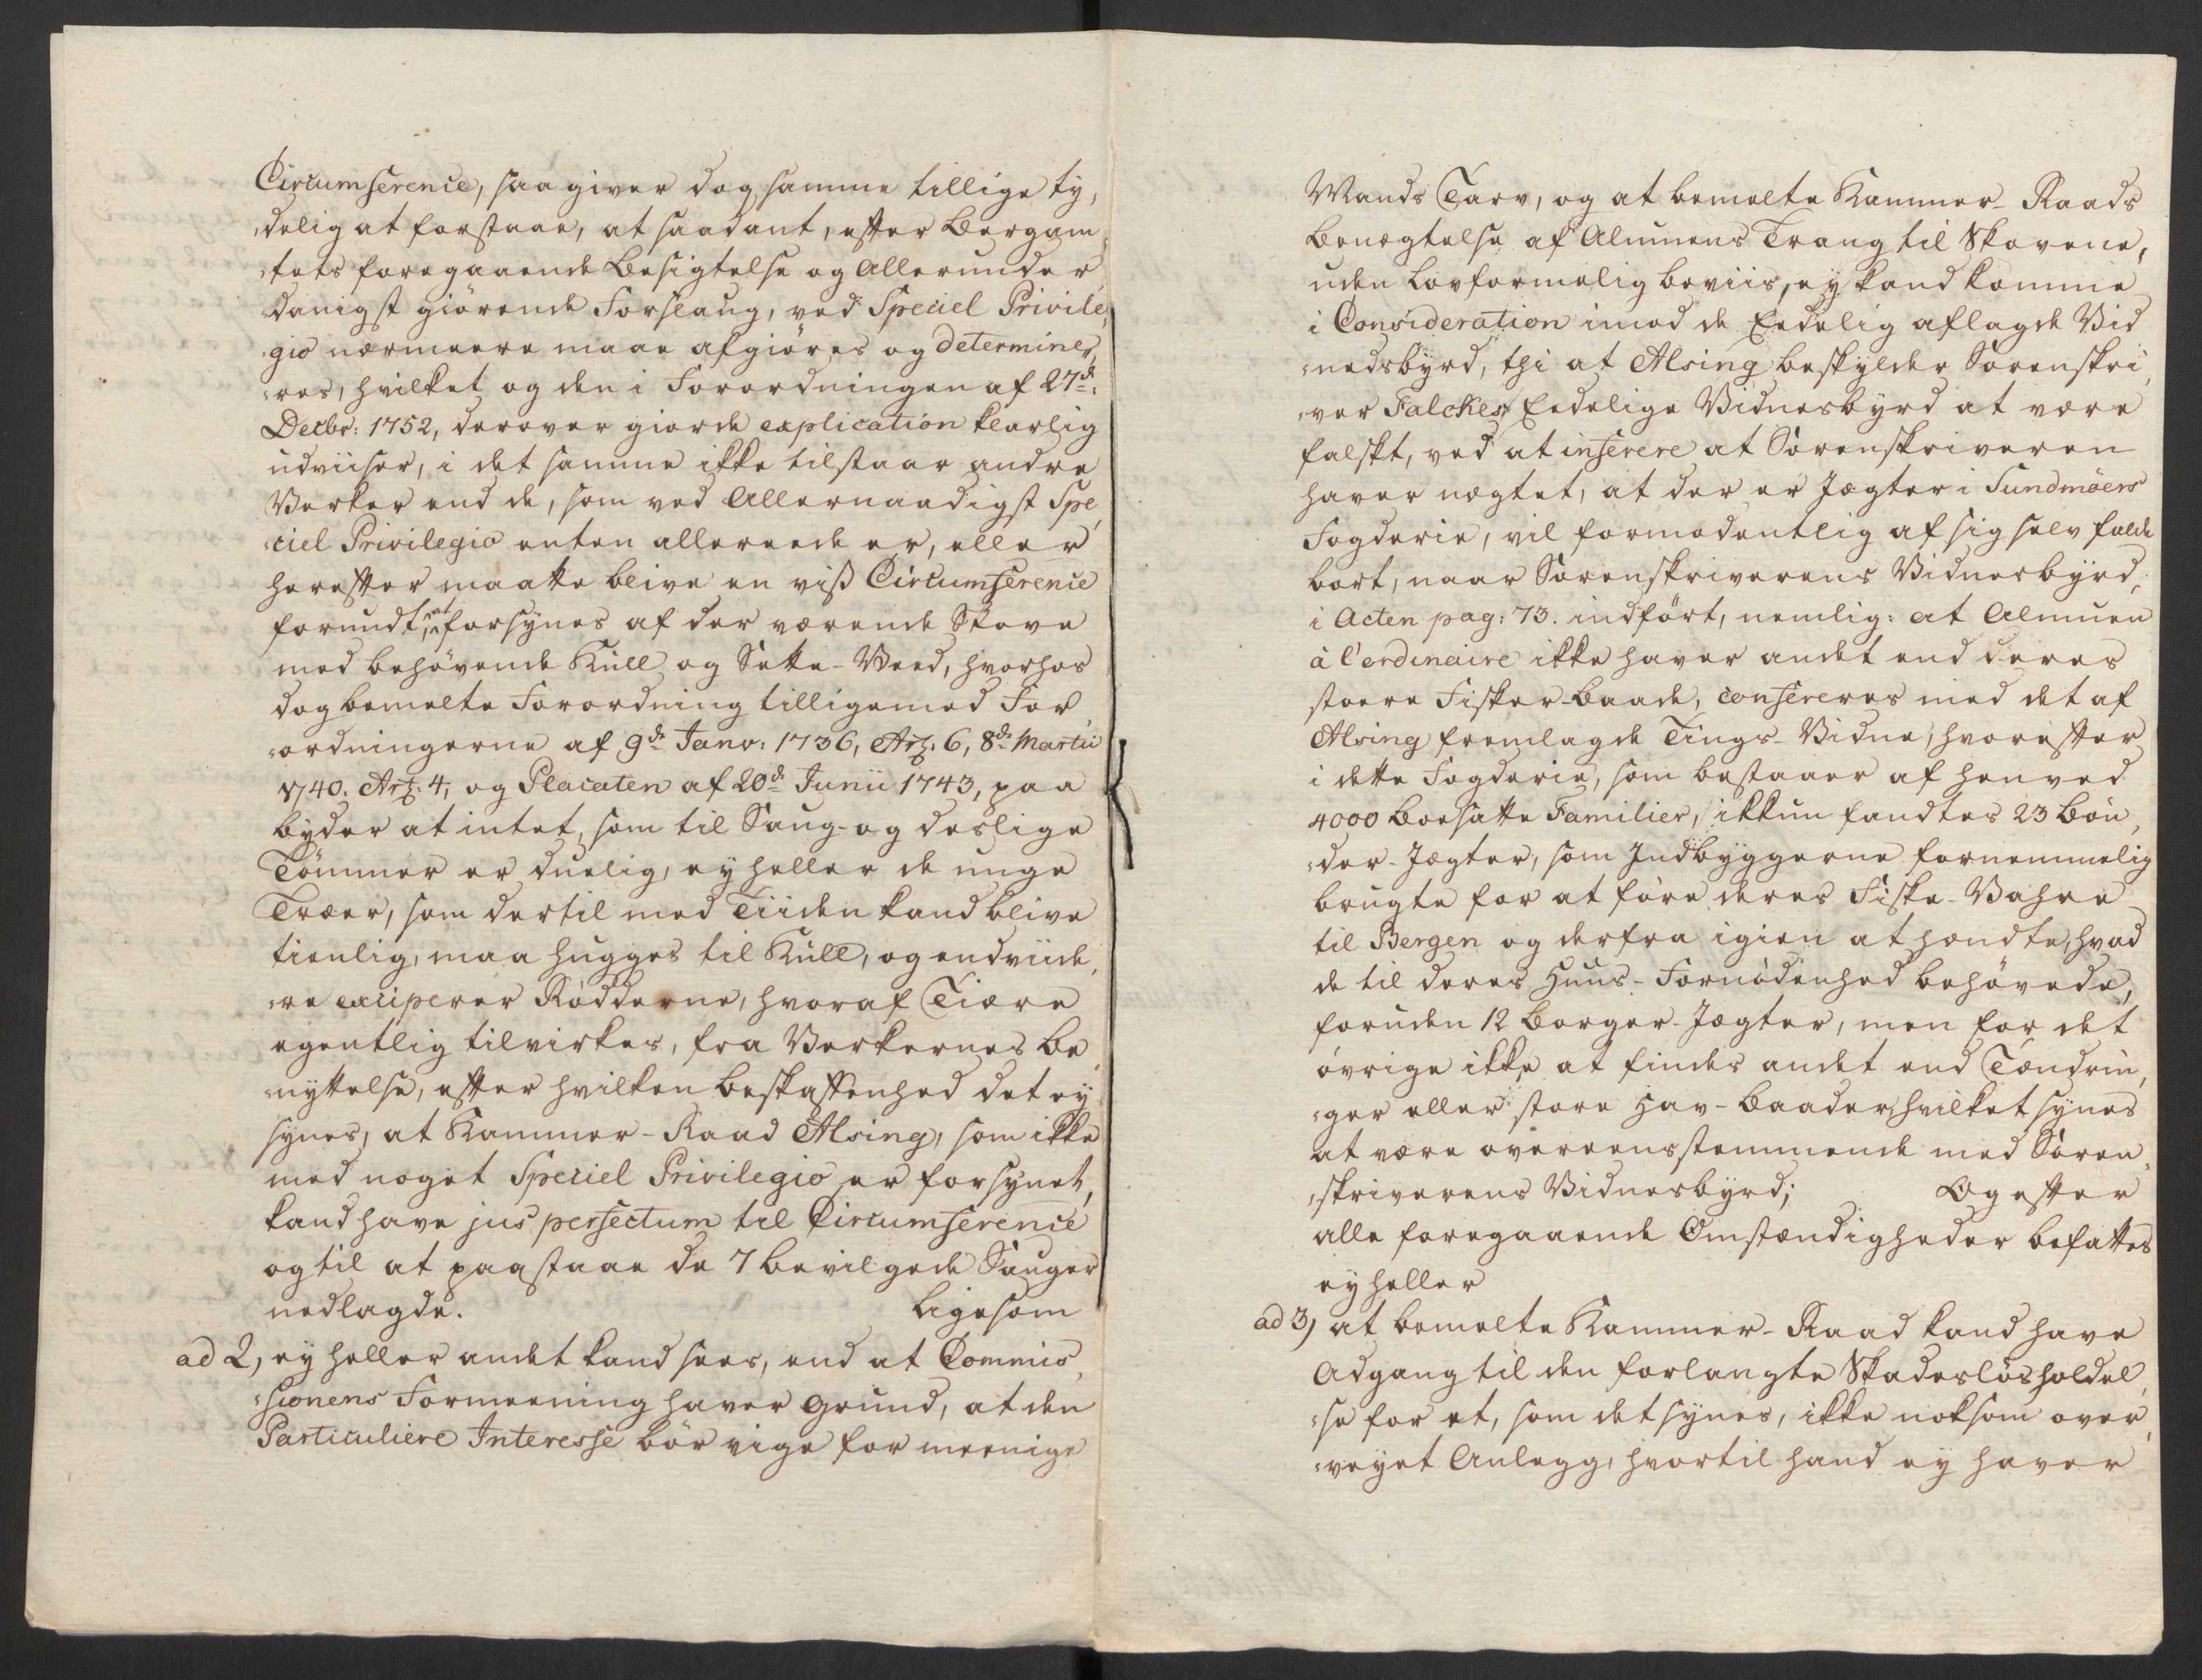 Circumference, saa giver dog samme tillige ty,
delig at forstaae, at saadant, efter Bergam,
tets foregaaende Besigtelse og Allerunder,
danigst giørende Forslaug, ved Speciel Privile,
gio nærmeere maae afgiøres og determine,
res, hvilket og den i Forordningen af 27de
Decbr: 1752, derover giorde explication klarlig
udviiser, i det samme ikke tilstaar andre
Verker end de, som ved Allernaadigst Spe,
ciel Privilegio enten allereede er, eller
herefter maatte blive en viss Circumference
forundt, at forsynes af der værende Skove
med behøvende Kull og Sette-Veed, hvorhos
dog bemelte Forordning tilligemed For,
ordningerne af 9de Janv: 1736, Art: 6, 8de Martii
1740. Art: 4, og Placaten af 20de Junii 1743, paa
byder at intet, som til Saug- og deslige
Tømmer er duelig, ey heller de unge
Træer, som dertil med Tiiden kand blive
tienlig, maa hugges til Kull, og endviide,
re exciperer Rødderne, hvoraf Tiære
egentlig tilvirkes, fra Verkernes be,
nyttelse, efter hvilken beskaffenhed det ey
synes, at Kammer-Raad Alsing, som ikke
med noget Speciel Privilegio er forsynet,
kand have jus perfectum til Circumference
og til at paastaae de 7 bevilgede Sauger
nedlagde. Ligesom
ad 2, ey heller andet kand sees, end at Commis,
sionens Formeening haver grund, at den
Particuliere Interesse bør vige for meenige
Mands Tarv, og at bemelte Kammer-Raads
benægtelse af Almuens Trang til Skovene,
uden Lovformelig beviis, ey kand komme
i Consideration imod de Eedelig aflagde Vid
nedsbyrd, thi at Alsing beskylder Sorenskri,
ver Falckes Eedelige Vidnesbyrd at være
falskt, ved at inferere at Sorenskriveren
haver nægtet, at der er Jægter i Sundmøers
Fogderie, vil formodentlig af sig selv falde
bort, naar Sorenskriverens Vidnesbyrd,
i Acten pag: 73. indført, nemlig: at Almuen
à l'ordinaire ikke haver andet end deres
stoere Fisker-Baade, confereres med det af
Alsing fremlagde Tings-Vidne, hvorefter
i dette Fogderie, som bestaaer af henved
4000 boesatte Familier, ikkun fandtes 23 Bøn,
der-Jægter, som Indbyggerne fornemmelig
brugte for at føre deres Fiske-Vahre
til Bergen og derfra igien at hændte, hvad
de til deres Huus-Fornødenhed behøvede,
foruden 12 Borger-Jægter, men for det
øvrige ikke at findes andet end Tændrin,
ger eller store Hav-Baader, hvilket synes
at være overeensstemmende med Soren,
skriverens Vidnesbyrd; Og efter
alle foregaaende Omstændigheder befattes
ey heller
ad 3, at bemelte Kammer-Raad kand have
Adgang til den forlangte Skadesløsholdel,
se for et, som det synes, ikke noksom over,
veyet Anlegg, hvortil hand ey haver